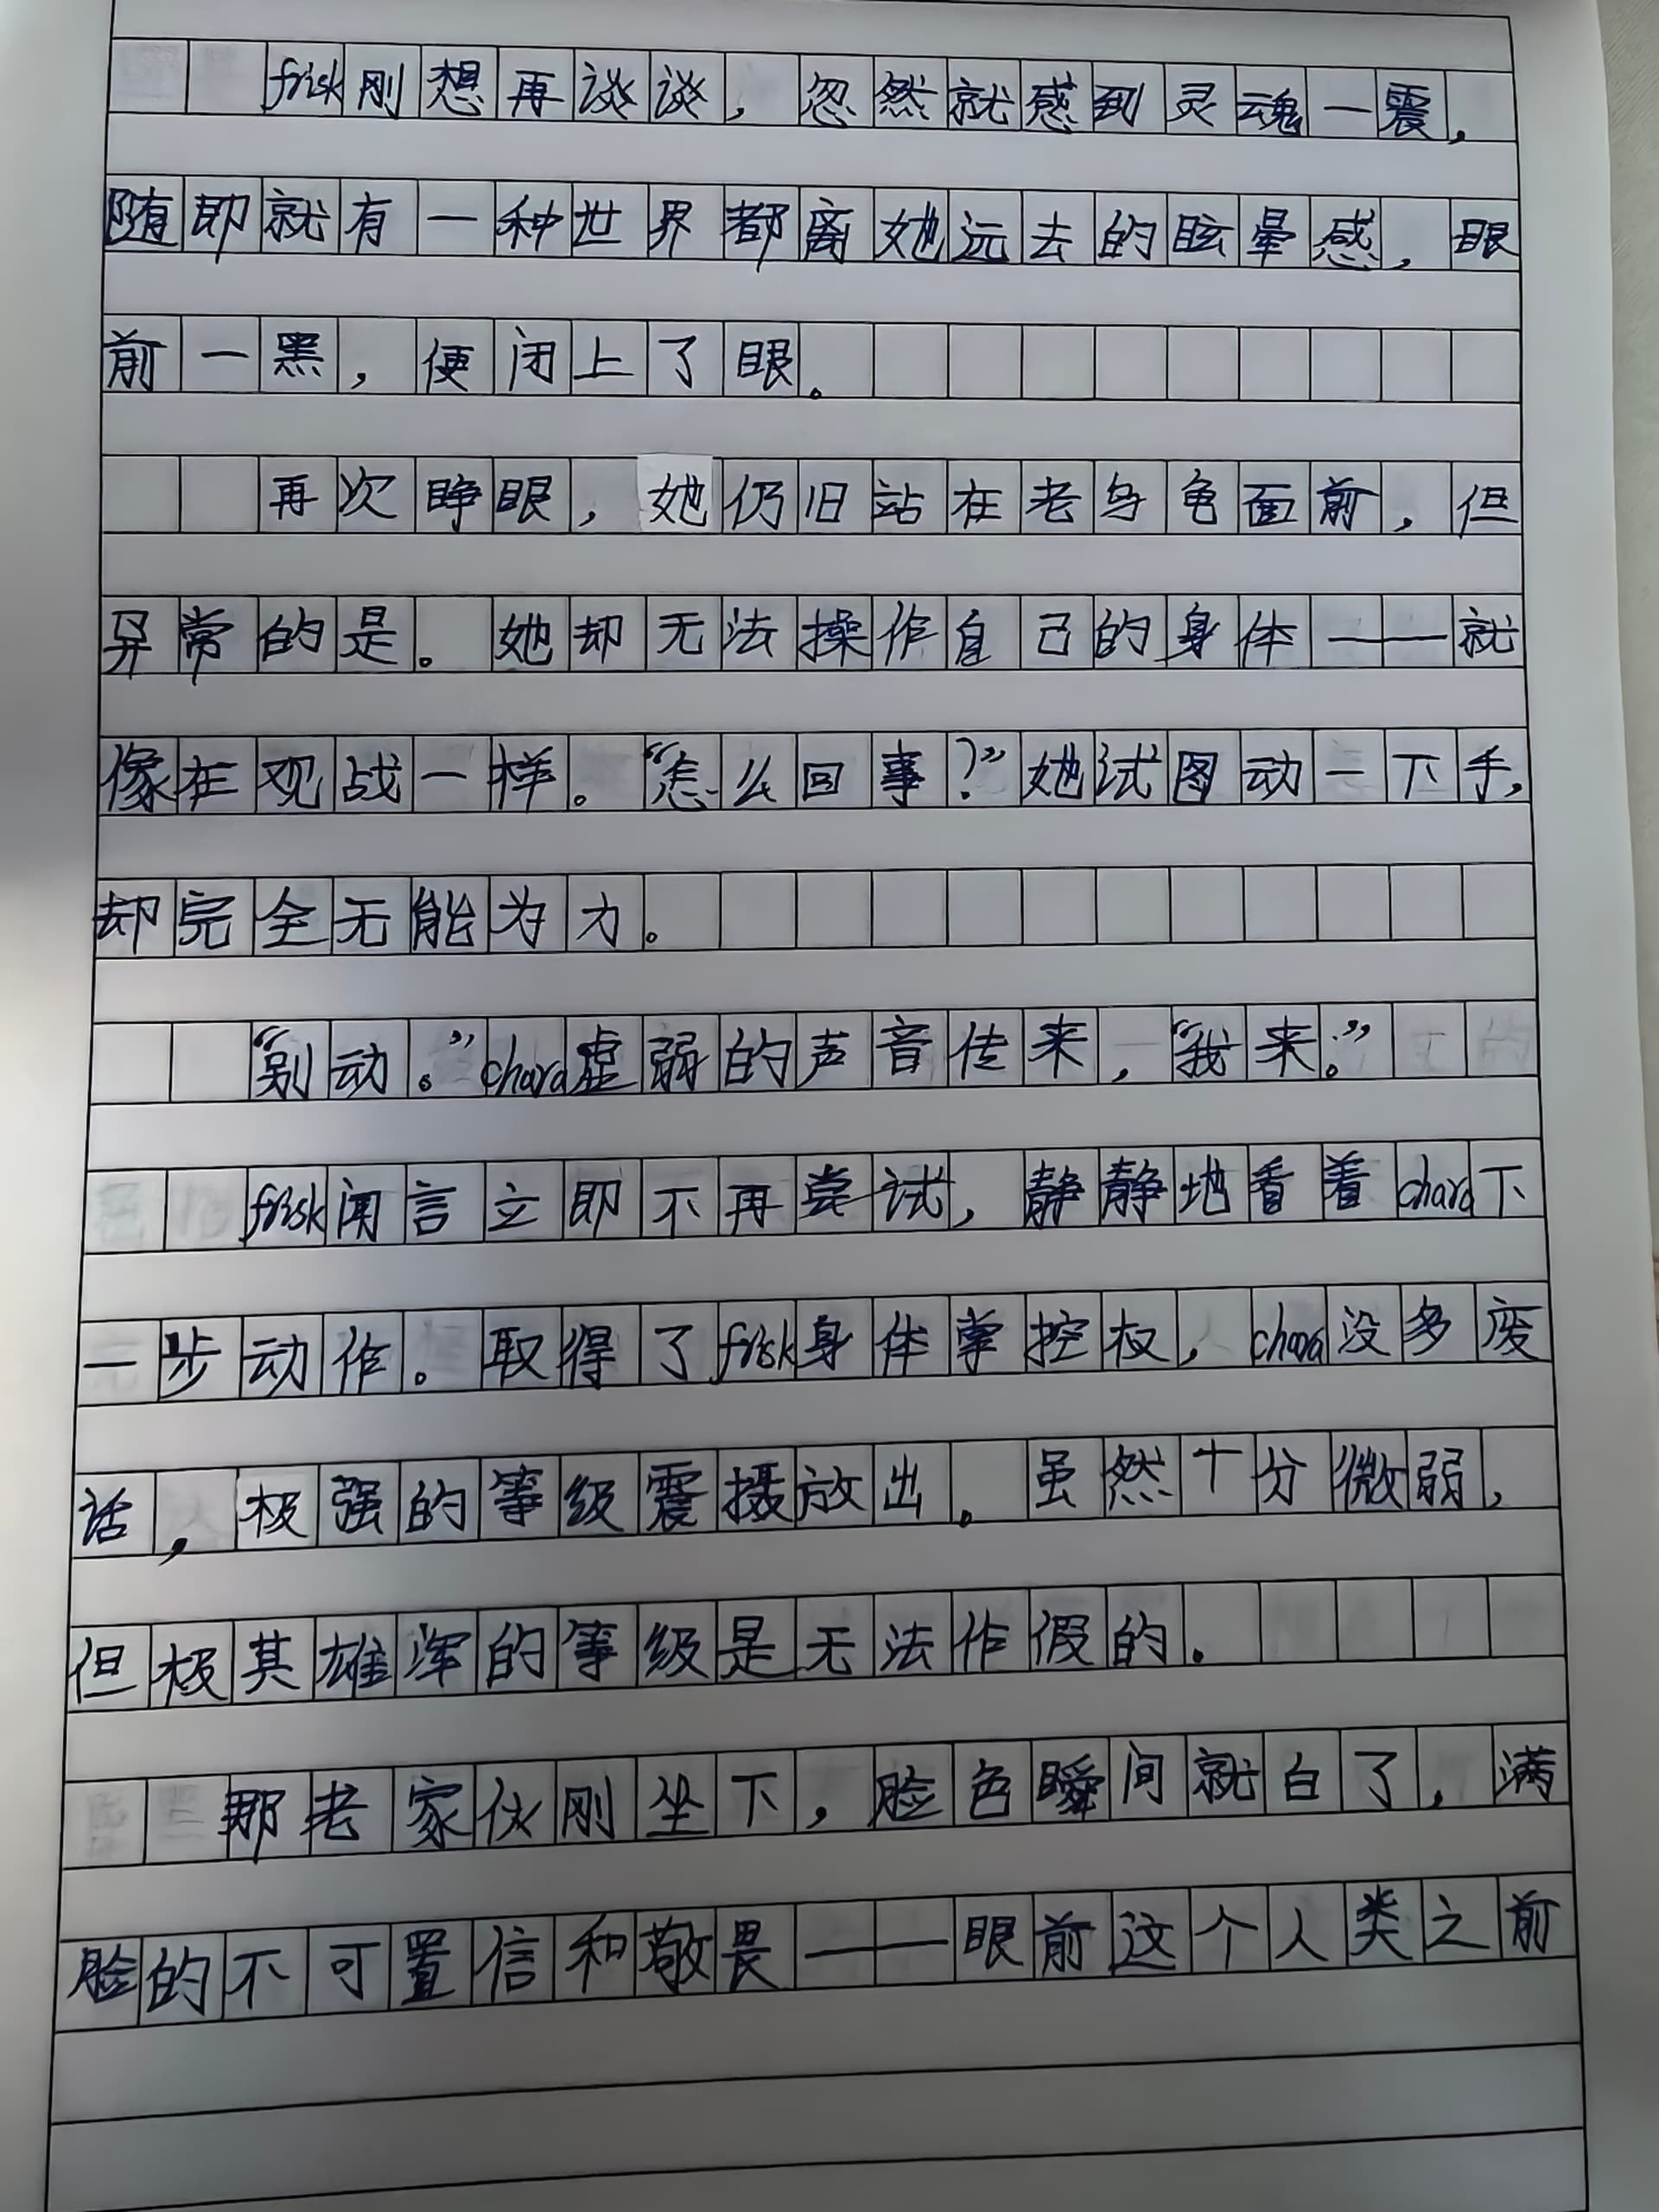 frisk刚想再谈谈，忽然就感到灵魂一震，
随即就有一种世界都离她远去的眩晕感，眼
前一黑，便闭上了眼。
再次睁眼，她仍旧站在老乌龟面前，但
异常的是。她却无法操作自己的身体——就
像在观战一样。“怎么回事？”她试图动一下手，
却完全无能为力。
“别动。”chara虚弱的声音传来，“我来。”
frisk闻言立即不再尝试，静静地看着chara下
一步动作。取得了frisk身体掌控权，chara没多废
话，极强的等级震摄放出。虽然十分微弱，
但极其雄浑的等级是无法作假的。
那老家伙刚坐下，脸色瞬间就白了，满
脸的不可置信和敬畏——眼前这个人类之前